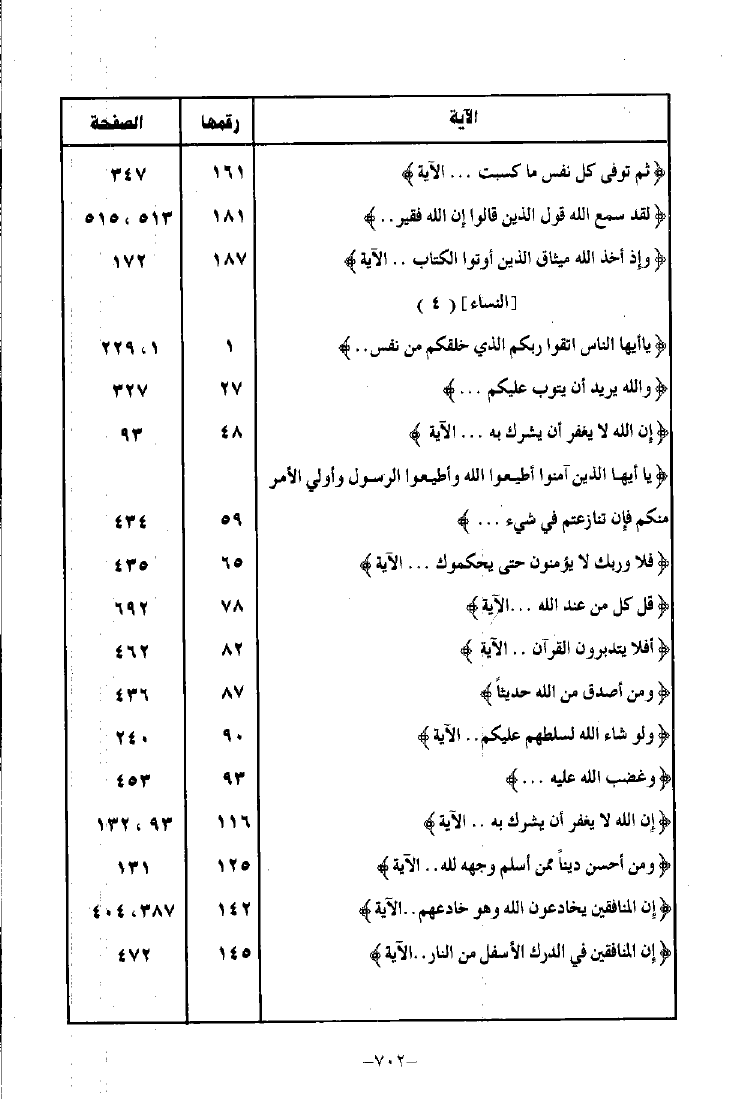 الآية رقمها الصفحة
﴿ ثم توفى كل نفس ما كسبت ... الآية ﴾ ١٦١ ٣٤٧
﴿ لقد سمع الله قول الذين قالوا إن الله فقير.. ﴾ ١٨١ ٥١٣ ، ٥١٥
﴿ وإذ أخذ الله ميثاق الذين أوتوا الكتاب .. الآية ﴾ ١٨٧ ١٧٢
[النساء] ( ٤ )
﴿ ياأيها الناس اتقوا ربكم الذي خلقكم من نفس.. ﴾ ١ ١ ، ٢٢٩
﴿ والله يريد أن يتوب عليكم ... ﴾ ٢٧ ٣٢٧
﴿ إن الله لا يغفر أن يشرك به ... الآية ﴾ ٤٨ ٩٣
﴿ يا أيها الذين آمنوا أطيعوا الله وأطيعوا الرسول وأولي الأمر
منكم فإن تنازعتم في شيء ... ﴾ ٥٩ ٤٣٤
﴿ فلا وربك لا يؤمنون حتى يحكموك ... الآية ﴾ ٦٥ ٤٣٥
﴿ قل كل من عند الله ...الآية ﴾ ٧٨ ٦٩٢
﴿ أفلا يتدبرون القرآن .. الآية ﴾ ٨٢ ٤٦٢
﴿ ومن أصدق من الله حديثاً ﴾ ٨٧ ٤٣٦
﴿ ولو شاء الله لسلطهم عليكم.. الآية ﴾ ٩٠ ٢٤٠
﴿ وغضب الله عليه ... ﴾ ٩٣ ٤٥٣
﴿ إن الله لا يغفر أن يشرك به .. الآية ﴾ ١١٦ ٩٣ ، ١٣٢
﴿ ومن أحسن ديناً ممن أسلم وجهه لله.. الآية ﴾ ١٢٥ ١٣١
﴿ إن المنافقين يخادعون الله وهو خادعهم..الآية ﴾ ١٤٢ ٣٨٧ ، ٤٠٤
﴿ إن المنافقين في الدرك الأسفل من النار..الآية ﴾ ١٤٥ ٤٧٢
–٧٠٢–